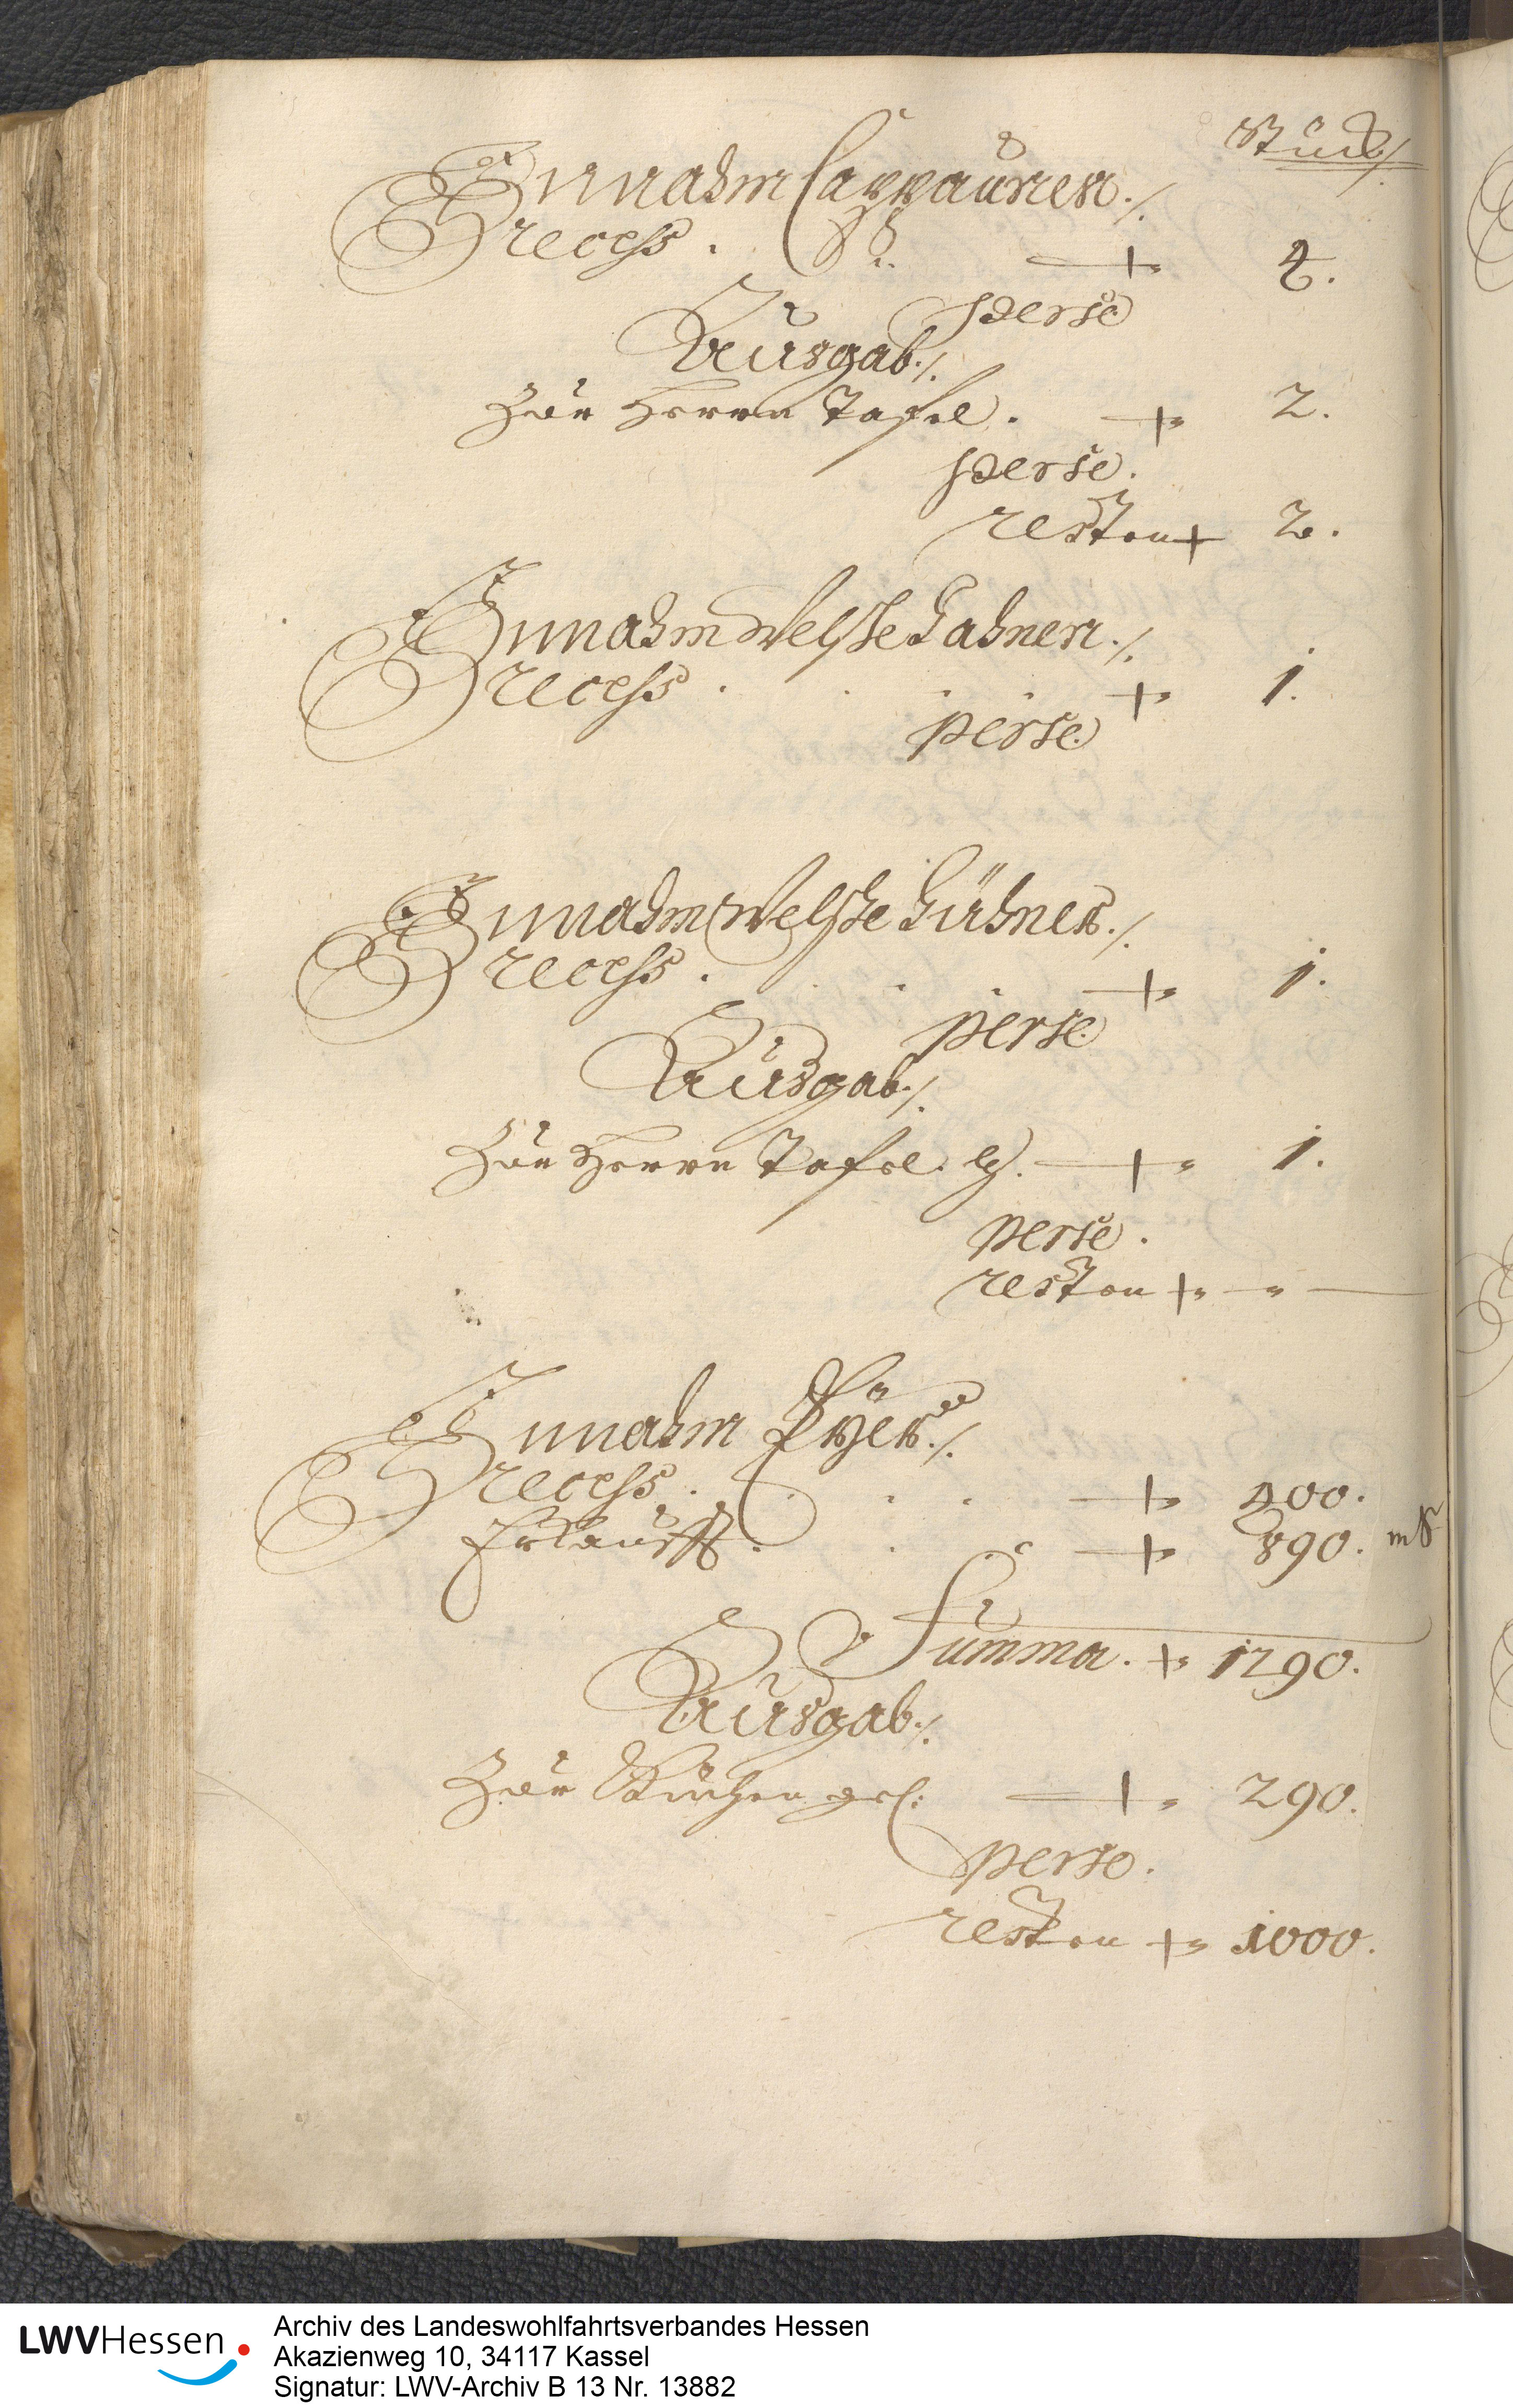 Stück
Einnahm Cappaunen ./.
recess . + 4.
per se
Ausgab ./.
Zur Herrn Tafel . + 2.
per se .
resten + 2.
Einnahm Welsche Hahnen ./.
recess . + 1.
per se
Einnahm Welsche Hühner ./.
recess . + 1.
per se
Ausgab ./.
Zur Herrn Tafel. + 1.
per se .
resten + — —
Einnahm Eyer ./.
recess . + 400.
Erkaufft . + 890.
Summa . + 1290.
Ausgab ./.
Zur Küchen + 290.
per se .
resten + 1000.
LWVHessen
Archiv des Landeswohlfahrtsverbandes Hessen
Akazienweg 10, 34117 Kassel
Signatur: LWV-Archiv B 13 Nr. 13882